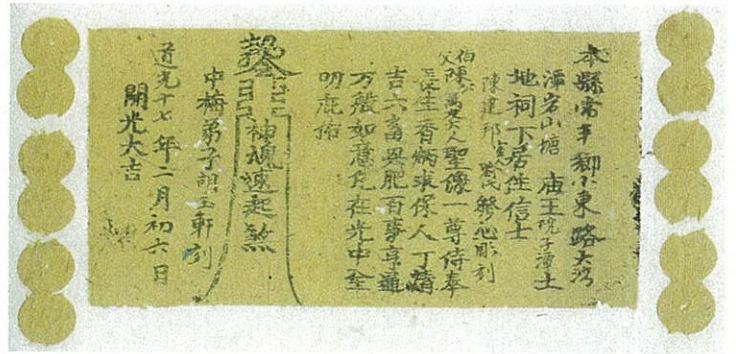 本縣常平鄉小東路大沙
潭宕山塘 庙王晚子潭土
地祠下居住信士
陳建邦 室人 發心彫刻
伯父陳公萬 聖像一尊侍奉
長生香炳求保人丁清
吉六畜興肥百事亨通
万般如意凢在光中全
叨庇佑
神魂速起煞
中梅弟子胡玉軒刻
道光十七年二月初六日
開光大吉